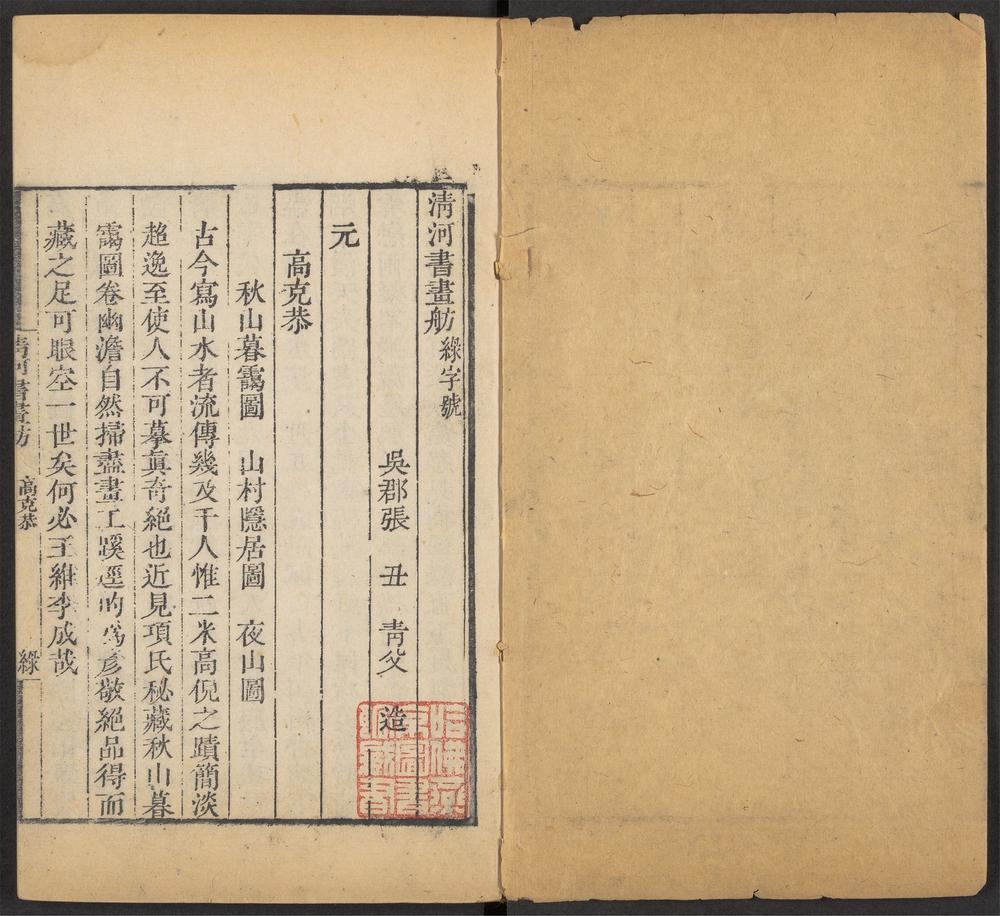 清河書畫舫綠字號
吳郡張丑青父造
元
高克恭
秋山暮靄圖 山村隱居圖 夜山圖
古今寫山水者流傳幾及千人惟二米高倪之蹟簡淡
超逸至使人不可摹眞奇絶也近見項氏秘藏秋山暮
靄圖卷幽澹自然掃盡畫工蹊逕的爲彥敬絶品得而
藏之足可眼空一世矣何必王維李成哉
清河書畫舫 高克恭 綠